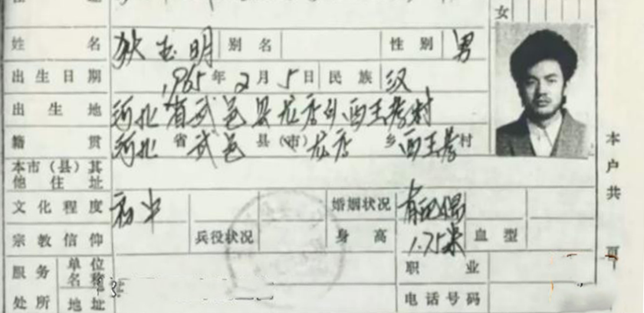 女
姓名 狄玉明 别名 性别 男
出生日期 1965年2月5日 民族 汉
出生地 河北省武邑县龙店乡西王孝村
籍贯 河北省武邑县(市)龙店乡西王孝村
本市(县)其他住址
文化程度 初中 婚姻状况 有配偶
宗教信仰 兵役状况 身高 1.75米 血型
服务处所 单位名称 职业
地址 电话号码
本户共 页